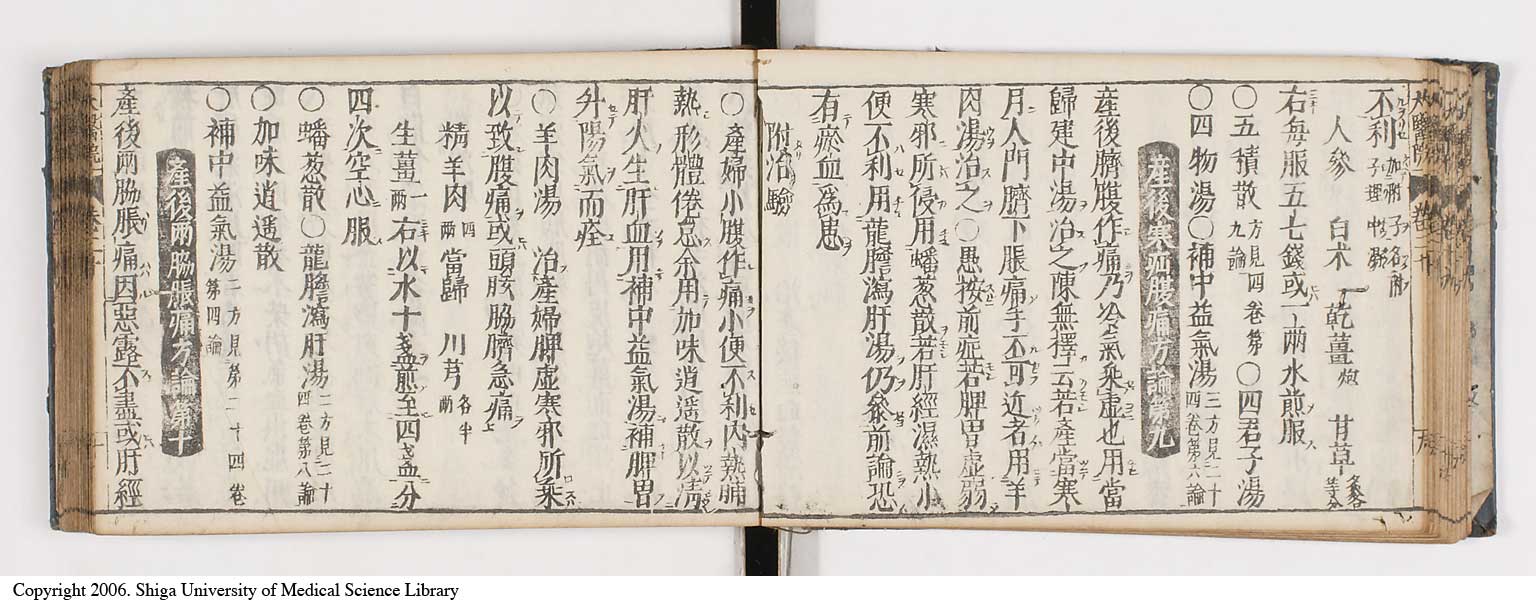 不利
人參 白朮 乾薑炮 甘草
右每服五七錢或一兩水煎服
○五積散方見四卷第九論○四君子湯
○四物湯○補中益氣湯三方見二十四卷第六論
産後寒疝腹痛方論第九
産後臍腹作痛乃冷氣乘虛也用當
歸建中湯治之陳無擇云若產當寒
月入門臍下脹痛手不可近者用羊
肉湯治之○愚按前症若脾胃虛弱
寒邪所侵用蟠葱散若肝經濕熱小
便不利用龍膽瀉肝湯仍參前論恐
有瘀血爲患
附治驗
○產婦小腹作痛小便不利內熱晡
熱形體倦怠余用加味逍遥散以淸
肝火生肝血用補中益氣湯補脾胃
升陽氣而痊
○羊肉湯 治產婦脾虛寒邪所乘
以致腹痛或頭眩脇臍急痛
精羊肉四兩 當歸 川芎各半兩
生薑一兩 右以水十盞煎至四盞分
四次空心服
○蟠葱散○龍膽瀉肝湯二方見二十四卷第八論
○加味逍遥散
○補中益氣湯二方見第二十四卷第四論
產後兩脇脹痛方論第十
產後兩脇脹痛因惡露不盡或肝經
Copyright 2006. Shiga University of Medical Science Library